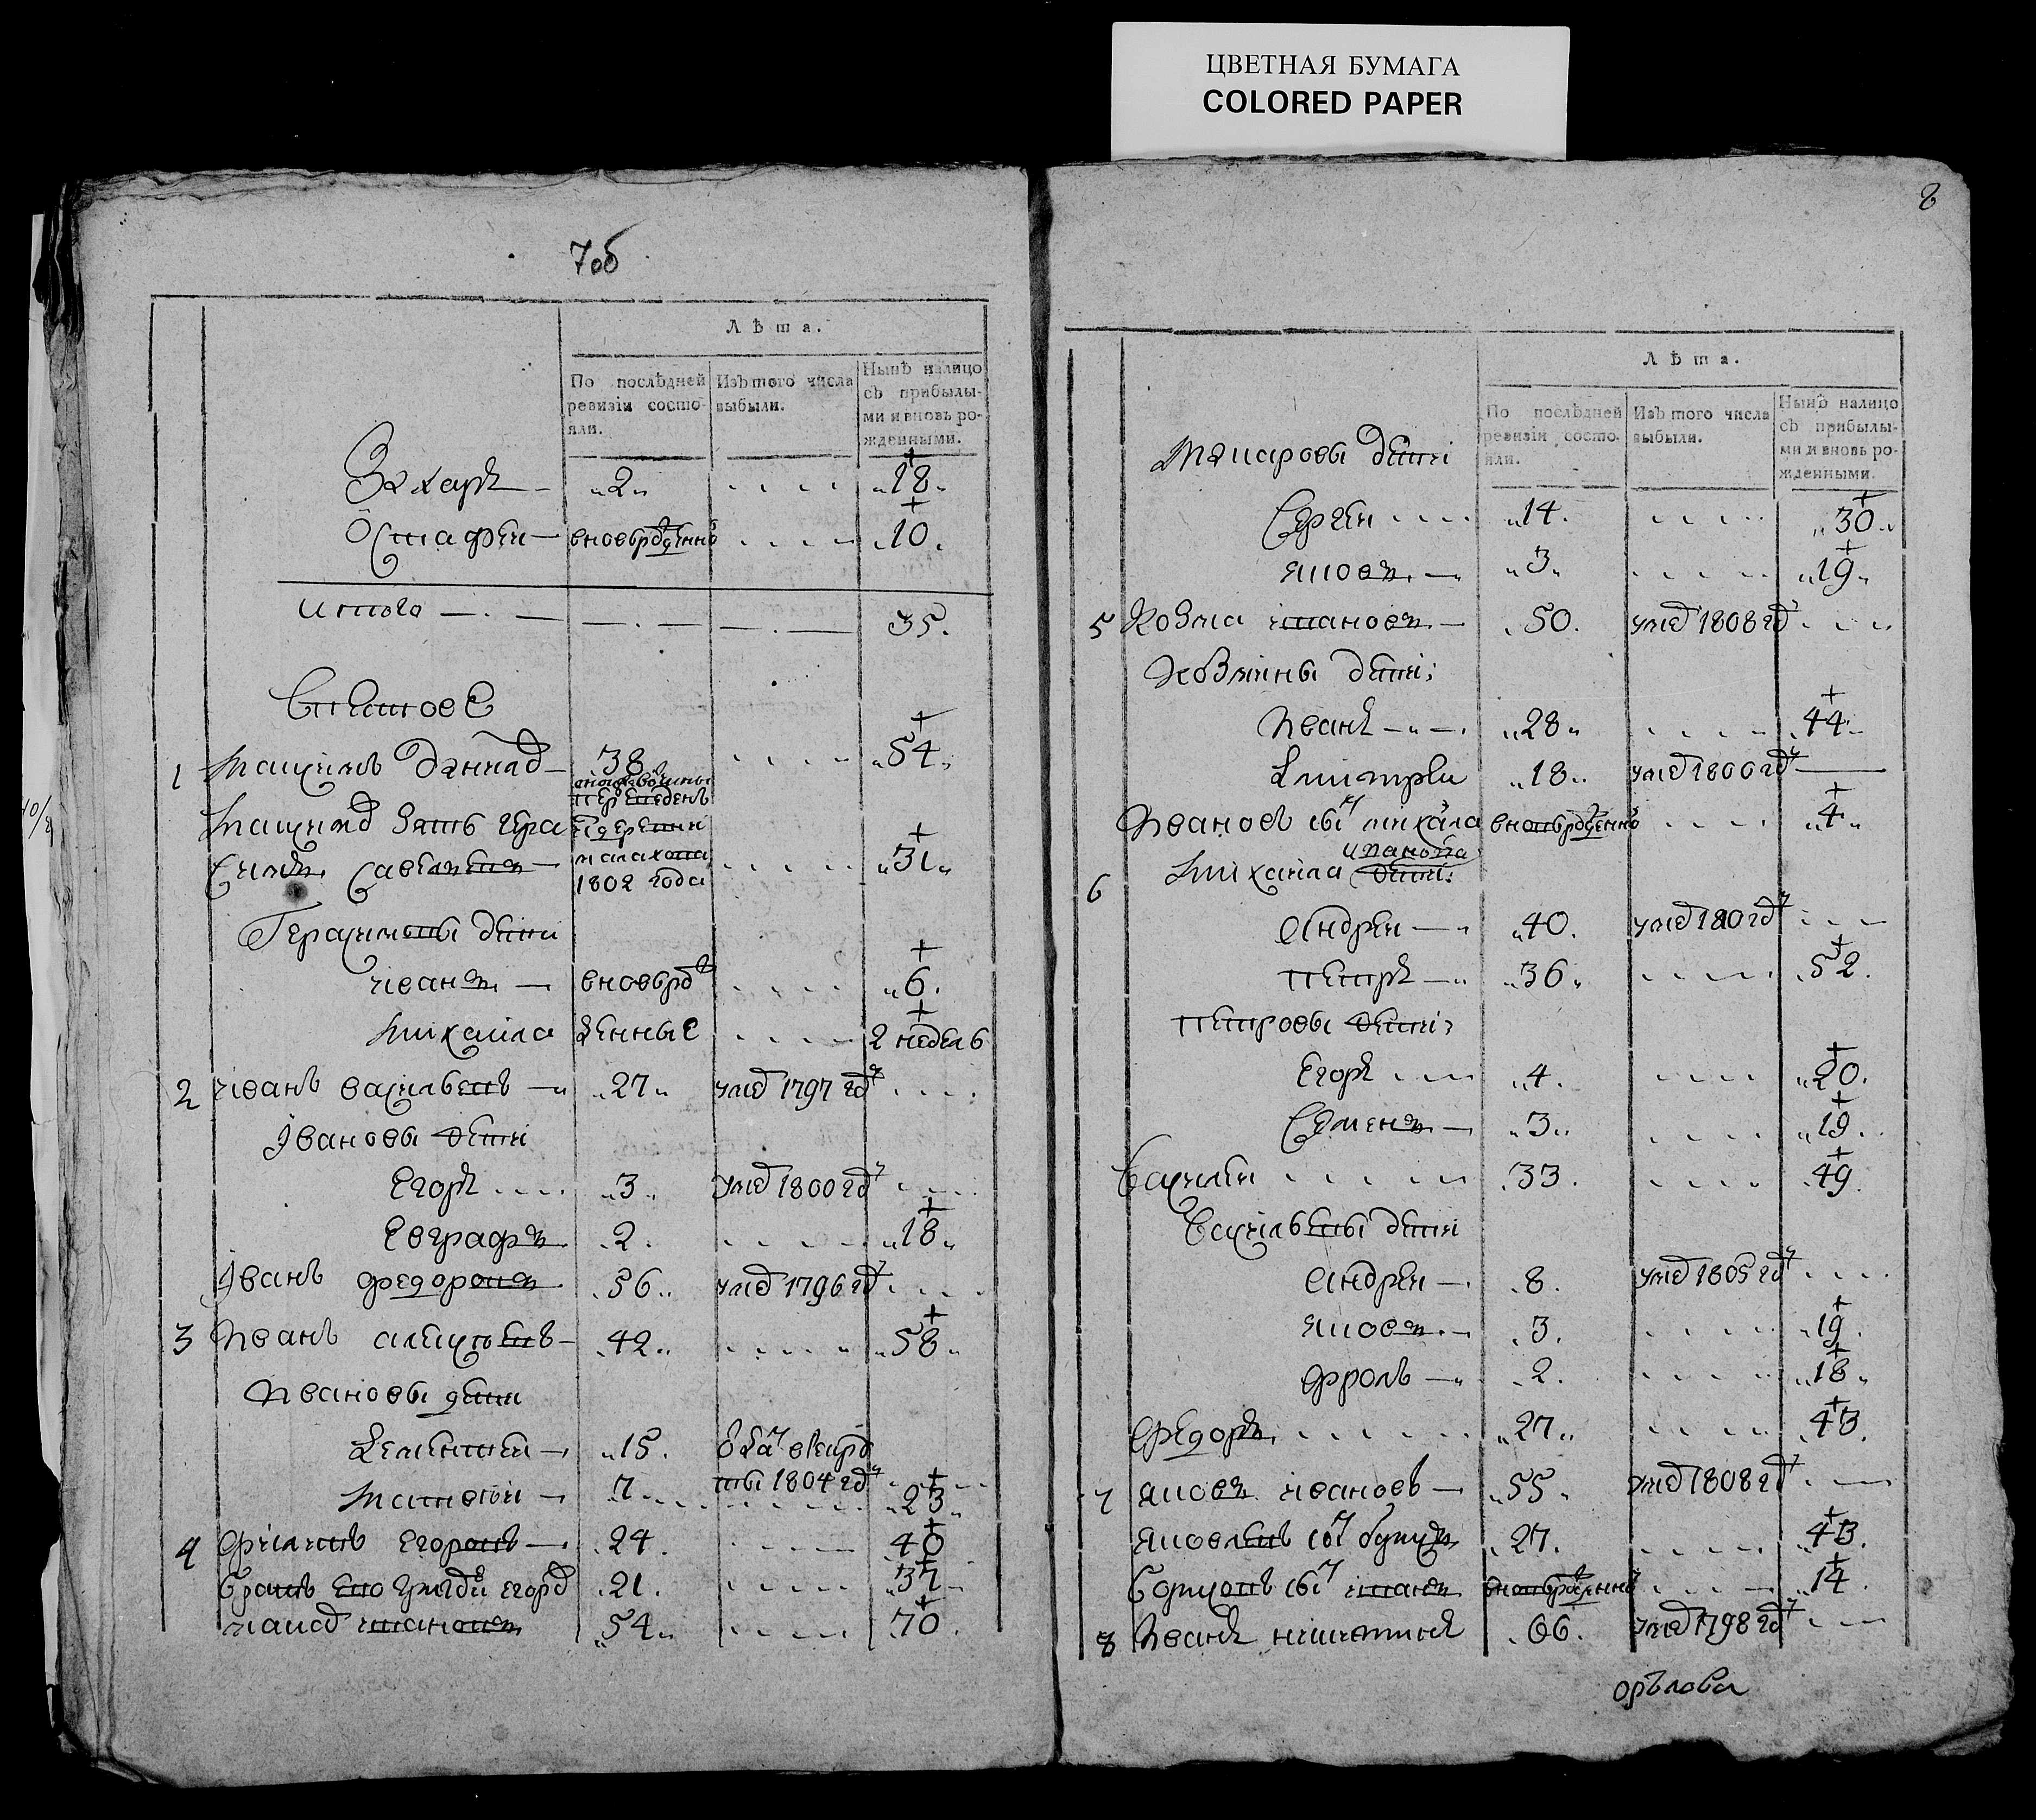 ЦВЕТНАЯ БУМАГА
COLORED PAPER
7об
Лѣта.
По послѣдней ревизіи состояли.
Изъ того числа выбыли.
Нынѣ налицо съ прибылыми и вновь рожденными.
Захаръ „2„ „18„
Остафеи вновьрожденно 10.
итого 35.
1 38 „54„
1802 года „31„
Герасимовы дети
иванъ вновьрож „6.
михаила денные 2 неделѣ
2 иванъ васильевъ „27„ умер 1797 год
Ивановы дети
Егоръ „3„ умер 1800 год
Евграфъ „2„ „18„
Иванъ федоровъ „56„ умер 1796 год
3 Иванъ алексѣевъ „42„ „58„
Ивановы дети
Дементеи „15. отдан в рекруты 1804 год
Матвеи 7 „23„
4 Филипъ егоровъ „24. 40
братъ ево егоръ „21. „37
ивановъ „54„ 70.
8
Лѣта.
По послѣдней ревизіи состояли.
Изъ того числа выбыли.
Нынѣ налицо съ прибылыми и вновь рожденными.
Макаровы дети
Сергеи „14. „30„
яковъ „3„ „19„
5 Козма ивановъ „50. умер 1808 год
Козмины дети:
Иванъ „28„ 44
Дмитреи „18„ умер 1806 год
Ивановъ сын михаила вновьрожденно „4„
6 михаила иванова дети:
андреи „40. умер 180 год
петръ „36„ 52.
петровы дети:
Егоръ „4. „20.
Семенъ „3„ „19.
василеи 33. 49.
васильевы дети
андреи 8. умер 1805 год
яковъ 3. 19.
фролъ 2. „18„
федоръ „27„ 43.
7 яковъ ивановъ „55„ умер 1808 год
яковлевъ сын 27. 43.
сын иванъ вновьрожденно 14.
8 Иванъ никитинъ 66. умер 1798 год
орѣлова